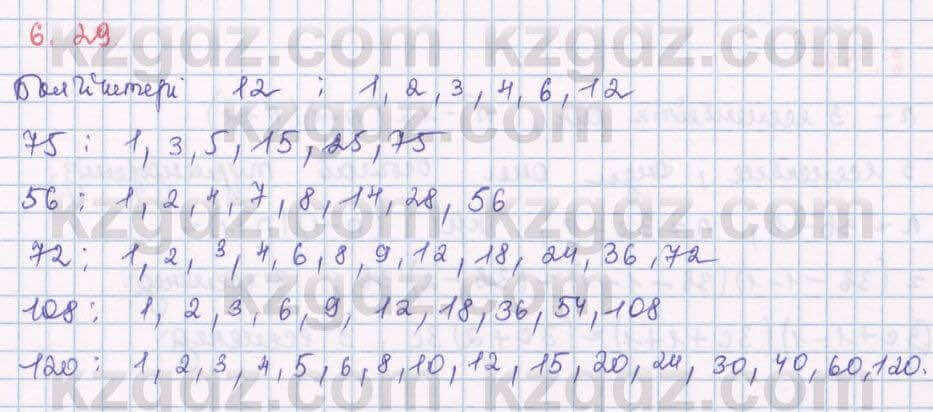 6.29
Бөлгіштері 12 : 1, 2, 3, 4, 6, 12
75 : 1, 3, 5, 15, 25, 75
56 : 1, 2, 4, 7, 8, 14, 28, 56
72 : 1, 2, 3, 4, 6, 8, 9, 12, 18, 24, 36, 72
108 : 1, 2, 3, 6, 9, 12, 18, 36, 54, 108
120 : 1, 2, 3, 4, 5, 6, 8, 10, 12, 15, 20, 24, 30, 40, 60, 120.
kzgdz.com kzgdz.com
kzgdz.com kzgdz.com
kzgdz.com kzgdz.com